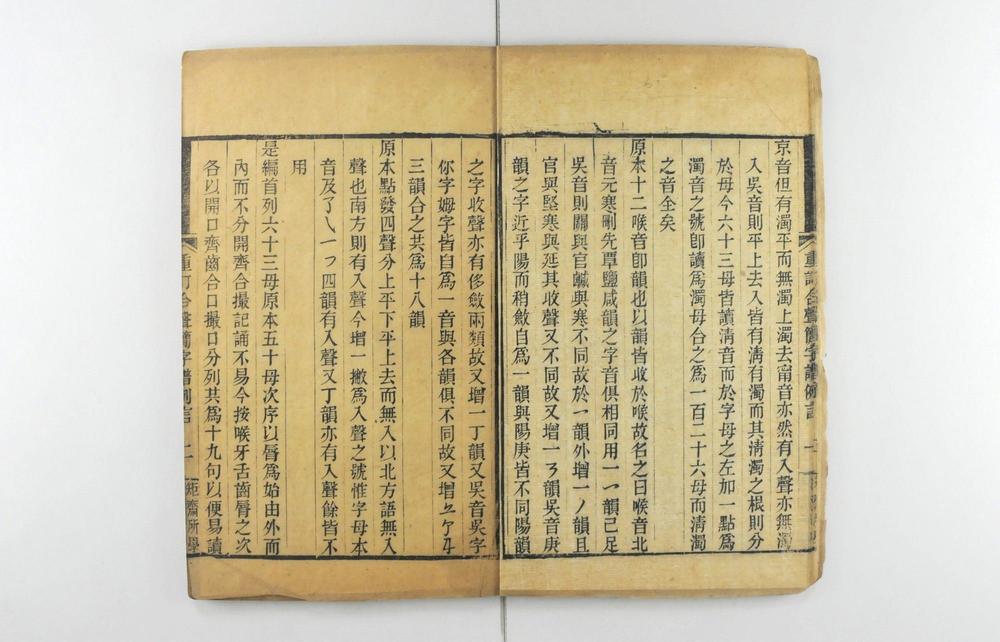 重訂合聲簡字譜例言
京音但有濁平而無濁上濁去甯音亦然有入聲亦無濁
入吳音則平上去入皆有淸有濁而其淸濁之根則分
於母今六十三母皆讀淸音而於字母之左加一點爲
濁音之號卽讀爲濁母合之爲一百二十六母而淸濁
之音全矣
原本十二喉音卽韻也以韻皆收於喉故名之曰喉音北
音元寒刪先覃鹽咸韻之字音俱相同用一乛韻已足
吳音則關與官鹹與寒不同故於乛韻外增一ノ韻且
官與堅寒與延其收聲又不同故又增一ろ韻吳音庚
韻之字近乎陽而稍斂自爲一韻與陽庚皆不同陽韻
之字收聲亦有侈斂兩類故又增一丁韻又吳音吳字
你字姆字皆自爲一音與各韻俱不同故又增
三韻合之共爲十八韻
原本點發四聲分上平下平上去而無入以北方語無入
聲也南方則有入聲今增一撇爲入聲之號惟字母本
音及了乀一フ四韻有入聲又丁韻亦有入聲餘皆不
用
是編首列六十三母原本五十母次序以唇爲始由外而
內而不分開齊合撮記誦不易今按喉牙舌齒唇之次
各以開口齊齒合口撮口分列共爲十九句以便易讀
重訂合聲簡字譜例言 二 矩齋所學